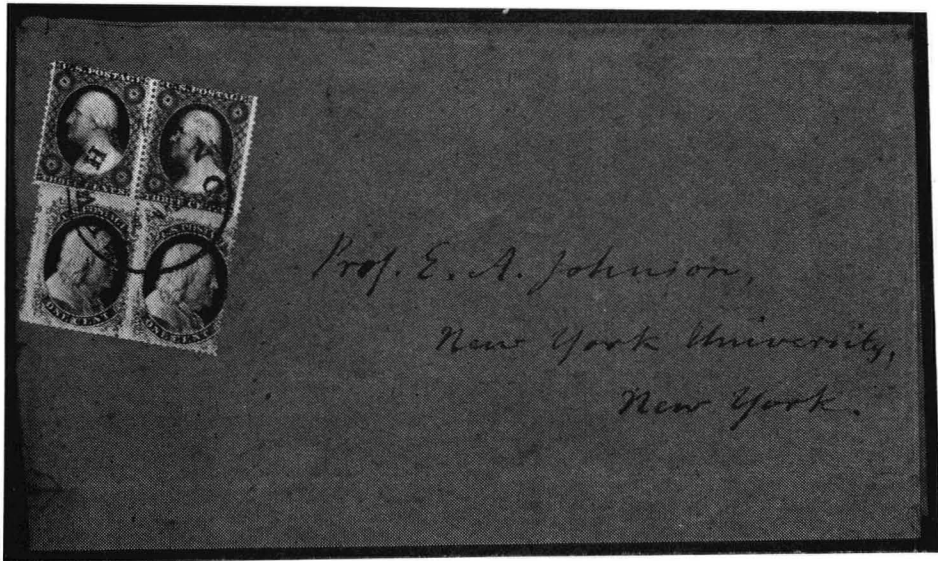 U.S. POSTAGE U.S. POSTAGE
THREE CENTS THREE CENTS
U.S. POSTAGE U.S. POSTAGE
ONE CENT ONE CENT
Prof. E. A. Johnson,
New York University,
New York.